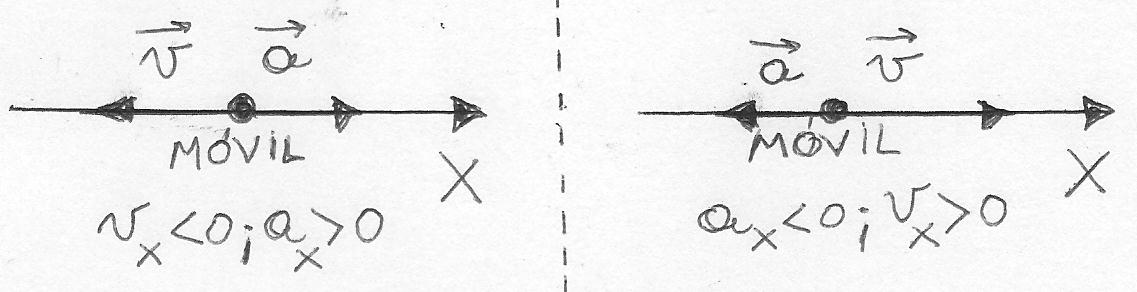 v⃗ a⃗
MÓVIL
X
vₓ<0; aₓ>0
a⃗ v⃗
MÓVIL
X
aₓ<0; vₓ>0